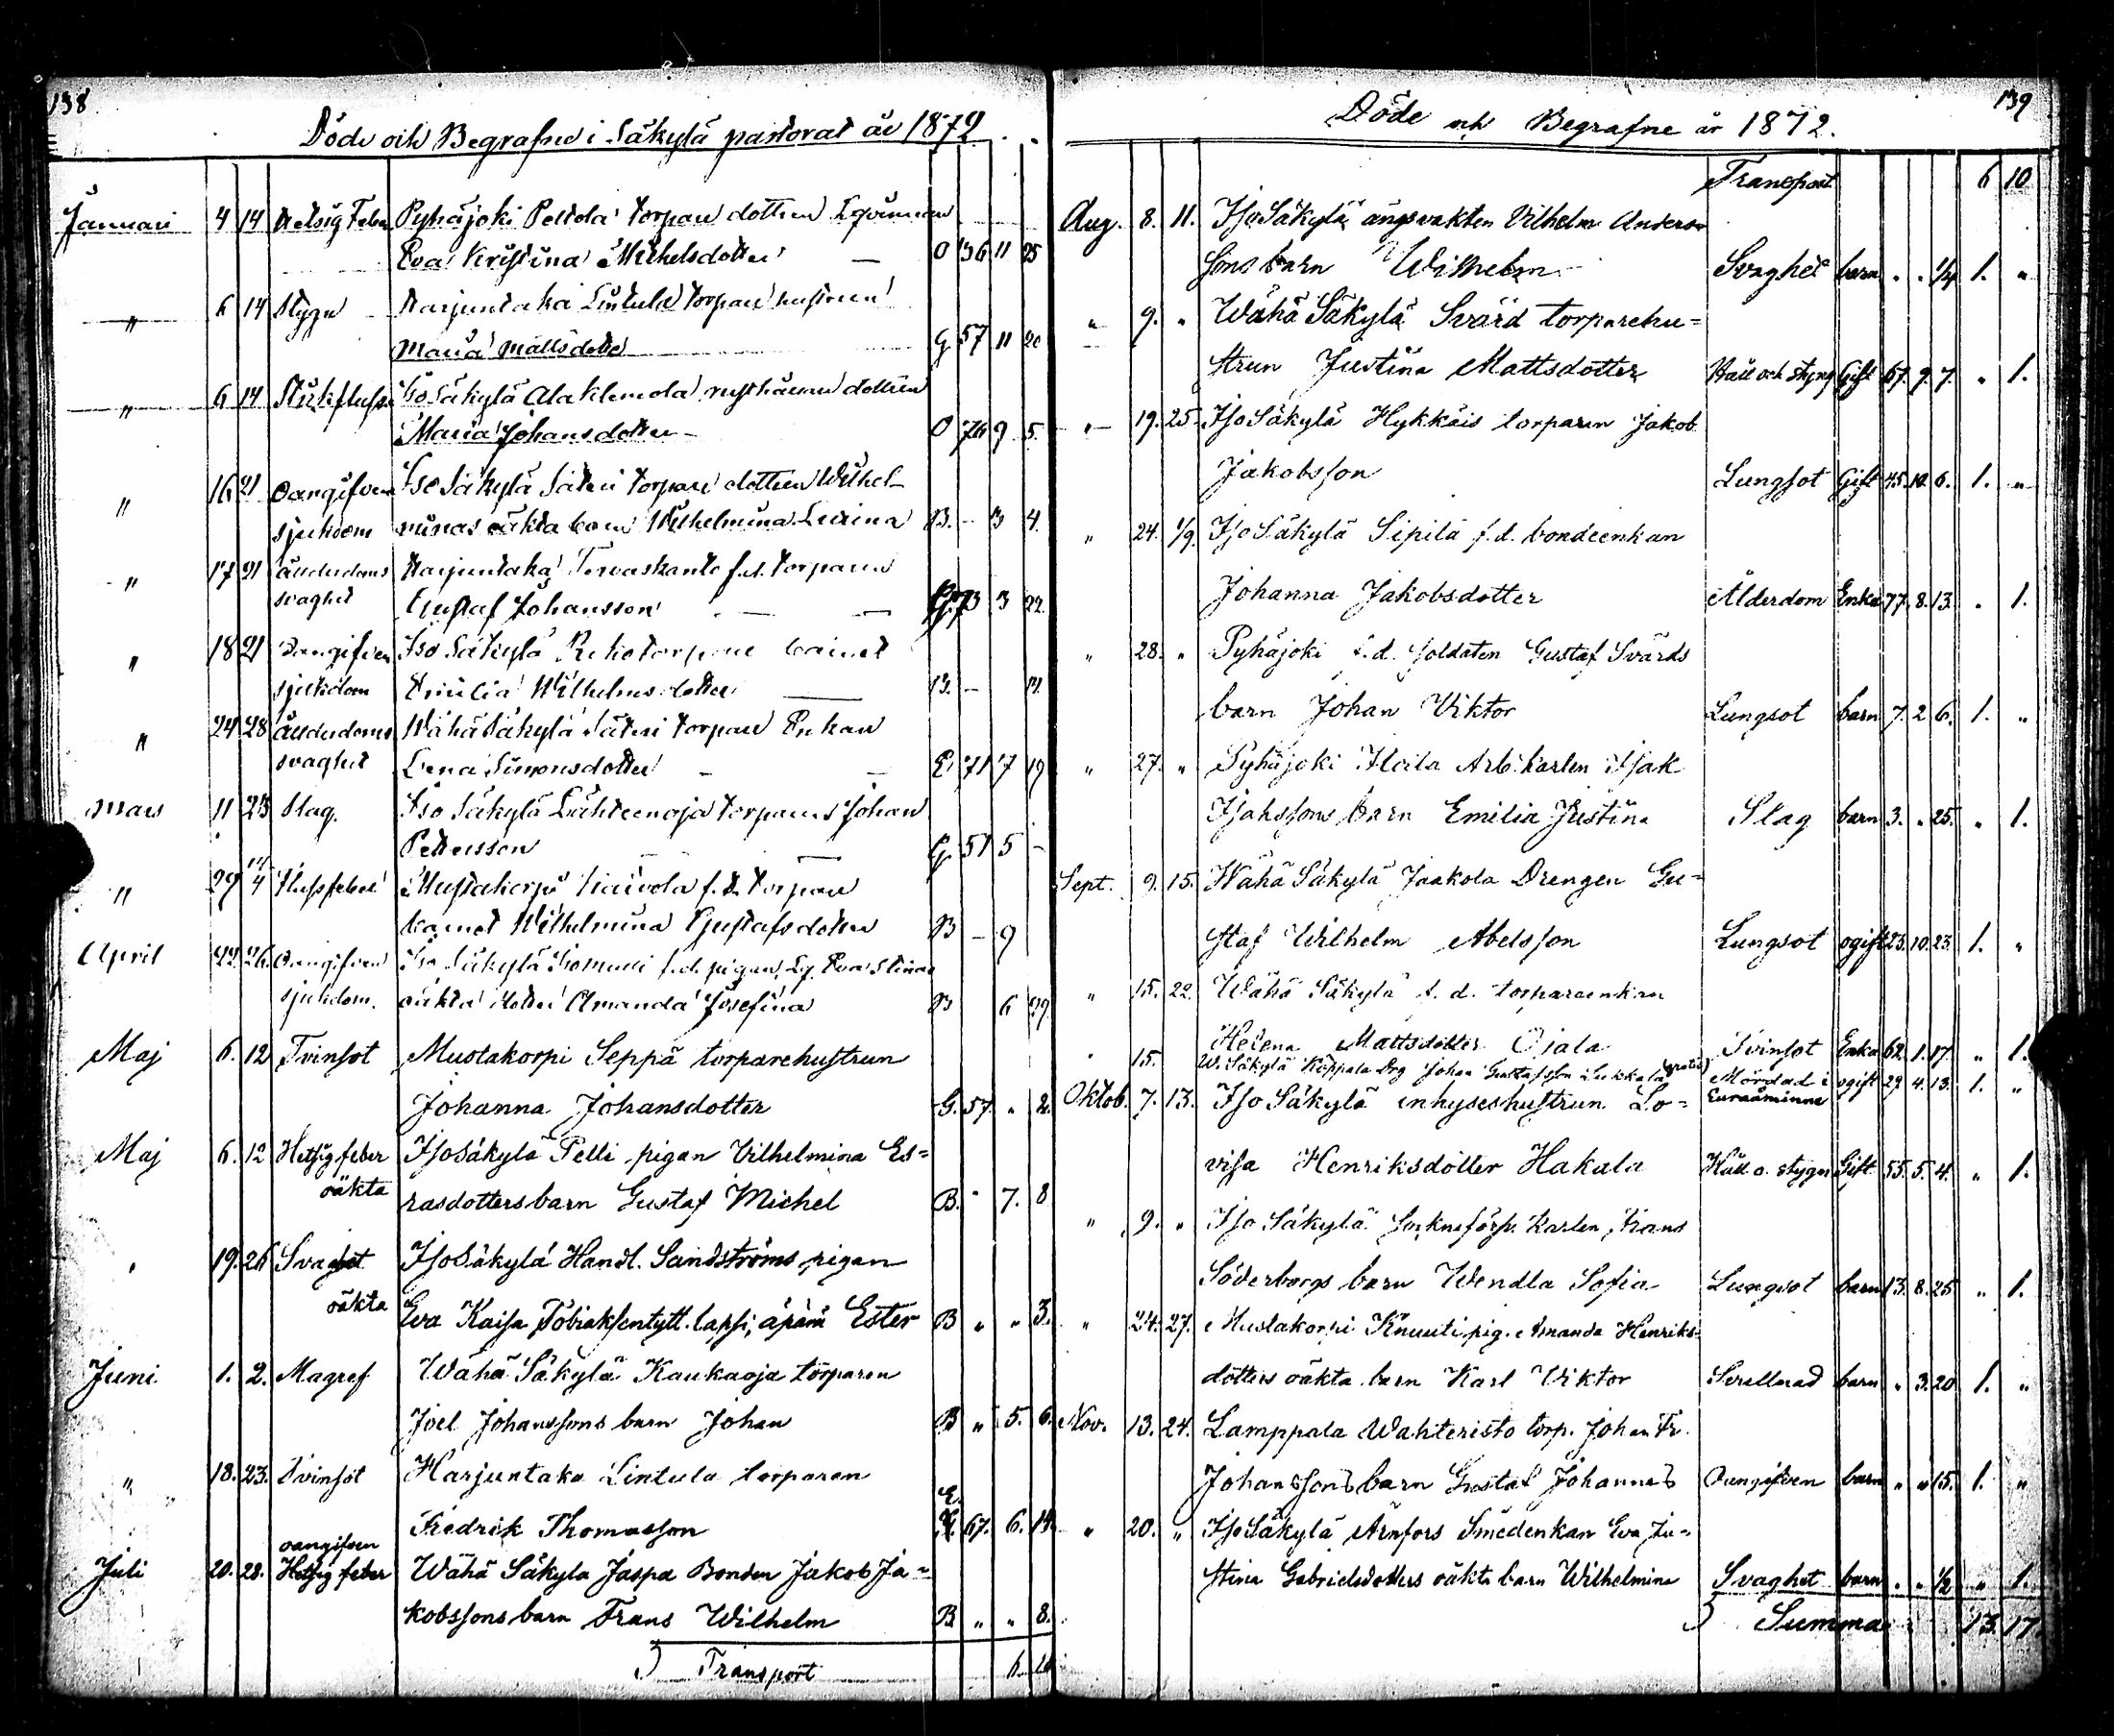 138
Döde och Begrafne i Säkylä pastorat år 1872
Januari 4 14 Hetsig Feber Pyhäjoki Peltola torpare dottren Eqvinnan
Eva Kristina Michelsdotter — O 36 11 25
" 6 14 Stygn Harjuntaka Lintula torpare hustrun
Maria Mattsdotter G 57 11 20
" 6 14 Iso Säkylä Alaklemola rusthållare dottren
Maria Johansdotter O 76 9 5.
" 16 21 Oangifven Iso Säkylä Säteri torpare dottren Wilhel-
sjukdom minas oäkta barn Wilhelmina B. - 3 4.
" 17 21 ålderdoms Harjuntaka Tervaskanto f.d. torparen
svaghet Gustaf Johansson G 73 3 22.
" 18 21 Oangifven Iso Säkylä torpare barnet
sjukdom Emilia Wilhelmsdotter B. -
" 24 28 ålderdoms Wähä Säkylä Säteri torpare Enkan
svaghet Lena Simonsdotter E 71 7 19
Mars 11 23 Slag. Iso Säkylä Lähteenoja torparen Johan
Pettersson G 51 5 -
" 29 14/4 Mustakorpi f.d. torpare
barnet Wilhelmina Gustafsdotter B - 9
April 22. 26. Oangifven Iso Säkylä f.d. pigan Eva Stinas
sjukdom. oäkta dotter Amanda Josefina B 6 29.
Maj 6. 12 Tvinsot Mustakorpi Seppä torparehustrun
Johanna Johansdotter G. 57. " 2.
Maj 6. 12 Hetsig feber Iso Säkylä Pelli pigan Vilhelmina Es-
oäkta rasdotters barn Gustaf Michel B. - 7. 8
" 19. 26 Svaghet Iso Säkylä Handl. Sandströms pigan
oäkta Eva Kaisa Tobiaksentytt. lapsi, äpärä Ester B " " 3.
Juni 1. 2. Magref Wähä Säkylä Kaukaoja torparen
Joel Johanssons barn Johan B " 5. 6.
" 18. 23. Tvinsot Harjuntaka Lintula torparen
E.
Fredrik Thomasson 67. 6. 14.
oangifven
Juli 20. 28. Hetsig feber Wähä Säkylä Jaspa Bonden Jakob Ja-
kobssons barn Frans Wilhelm B " " 8.
Transport 6 10
139
Döde och Begrafne år 1872.
Transport 6 10
Aug. 8. 11. Iso Säkylä ängsvakten Vilhelm Anders-
sons barn Wilhelm Svaghet barn " " 1/4 1. "
" 9. " Wähä Säkylä Svärd torparehu-
strun Justina Mattsdotter Håll och styng Gift 67. 9. 7. " 1.
" 19. 25. Iso Säkylä Hykkäis torparen Jakob
Jakobsson Lungsot Gift 45. 10. 6. 1. "
" 24. 1/9. Iso Säkylä Sipilä f.d. bondeenkan
Johanna Jakobsdotter Ålderdom Enka 77. 8. 13. " 1.
" 28. " Pyhäjoki f.d. soldaten Gustaf Svärds
barn Johan Viktor Lungsot barn 7. 2 6. 1. "
" 27. " Pyhäjoki Arb. karlen Isak
Isakssons barn Emilia Justina Slag barn 3. " 25. " 1.
Sept. 9. 15. Wähä Säkylä Jaakola Drengen Gu-
staf Wilhelm Abelsson Lungsot ogift 23. 10. 23. 1. "
" 15. 22. Wähä Säkylä f.d. torpareenkan
Helena Mattsdotter Ojala Tvinsot Enka 62. 1. 17. " 1.
" 15. W. Säkylä Koppala Drg Johan Gustafsson Lukkala (gratis) Mördad i ogift 29. 4. 13. 1. "
Euraåminne
Oktob. 7. 13. Iso Säkylä inhyseshustrun Lo-
visa Henriksdotter Hakala Håll o. stygn Gift 55. 5. 4. " 1.
" 9. " Iso Säkylä Karlen Frans
Söderborgs barn Wendla Sofia Lungsot barn 13. 8. 25 " 1.
" 24. 27. Mustakorpi Knuuti pig. Amanda Henriks-
dotters oäkta barn Karl Viktor Svullnad barn " 3. 20 1. "
Nov. 13. 24. Lamppala Wahteristo torp. Johan Fr.
Johanssons barn Gustaf Johannes Oangifven barn " " 15. 1. "
" 20. " Iso Säkylä Arnfors Smedenkan Eva Ju-
stina Gabrielsdotters oäkta barn Wilhelmina Svaghet barn " " 1/2 " 1.
Summa 13. 17.